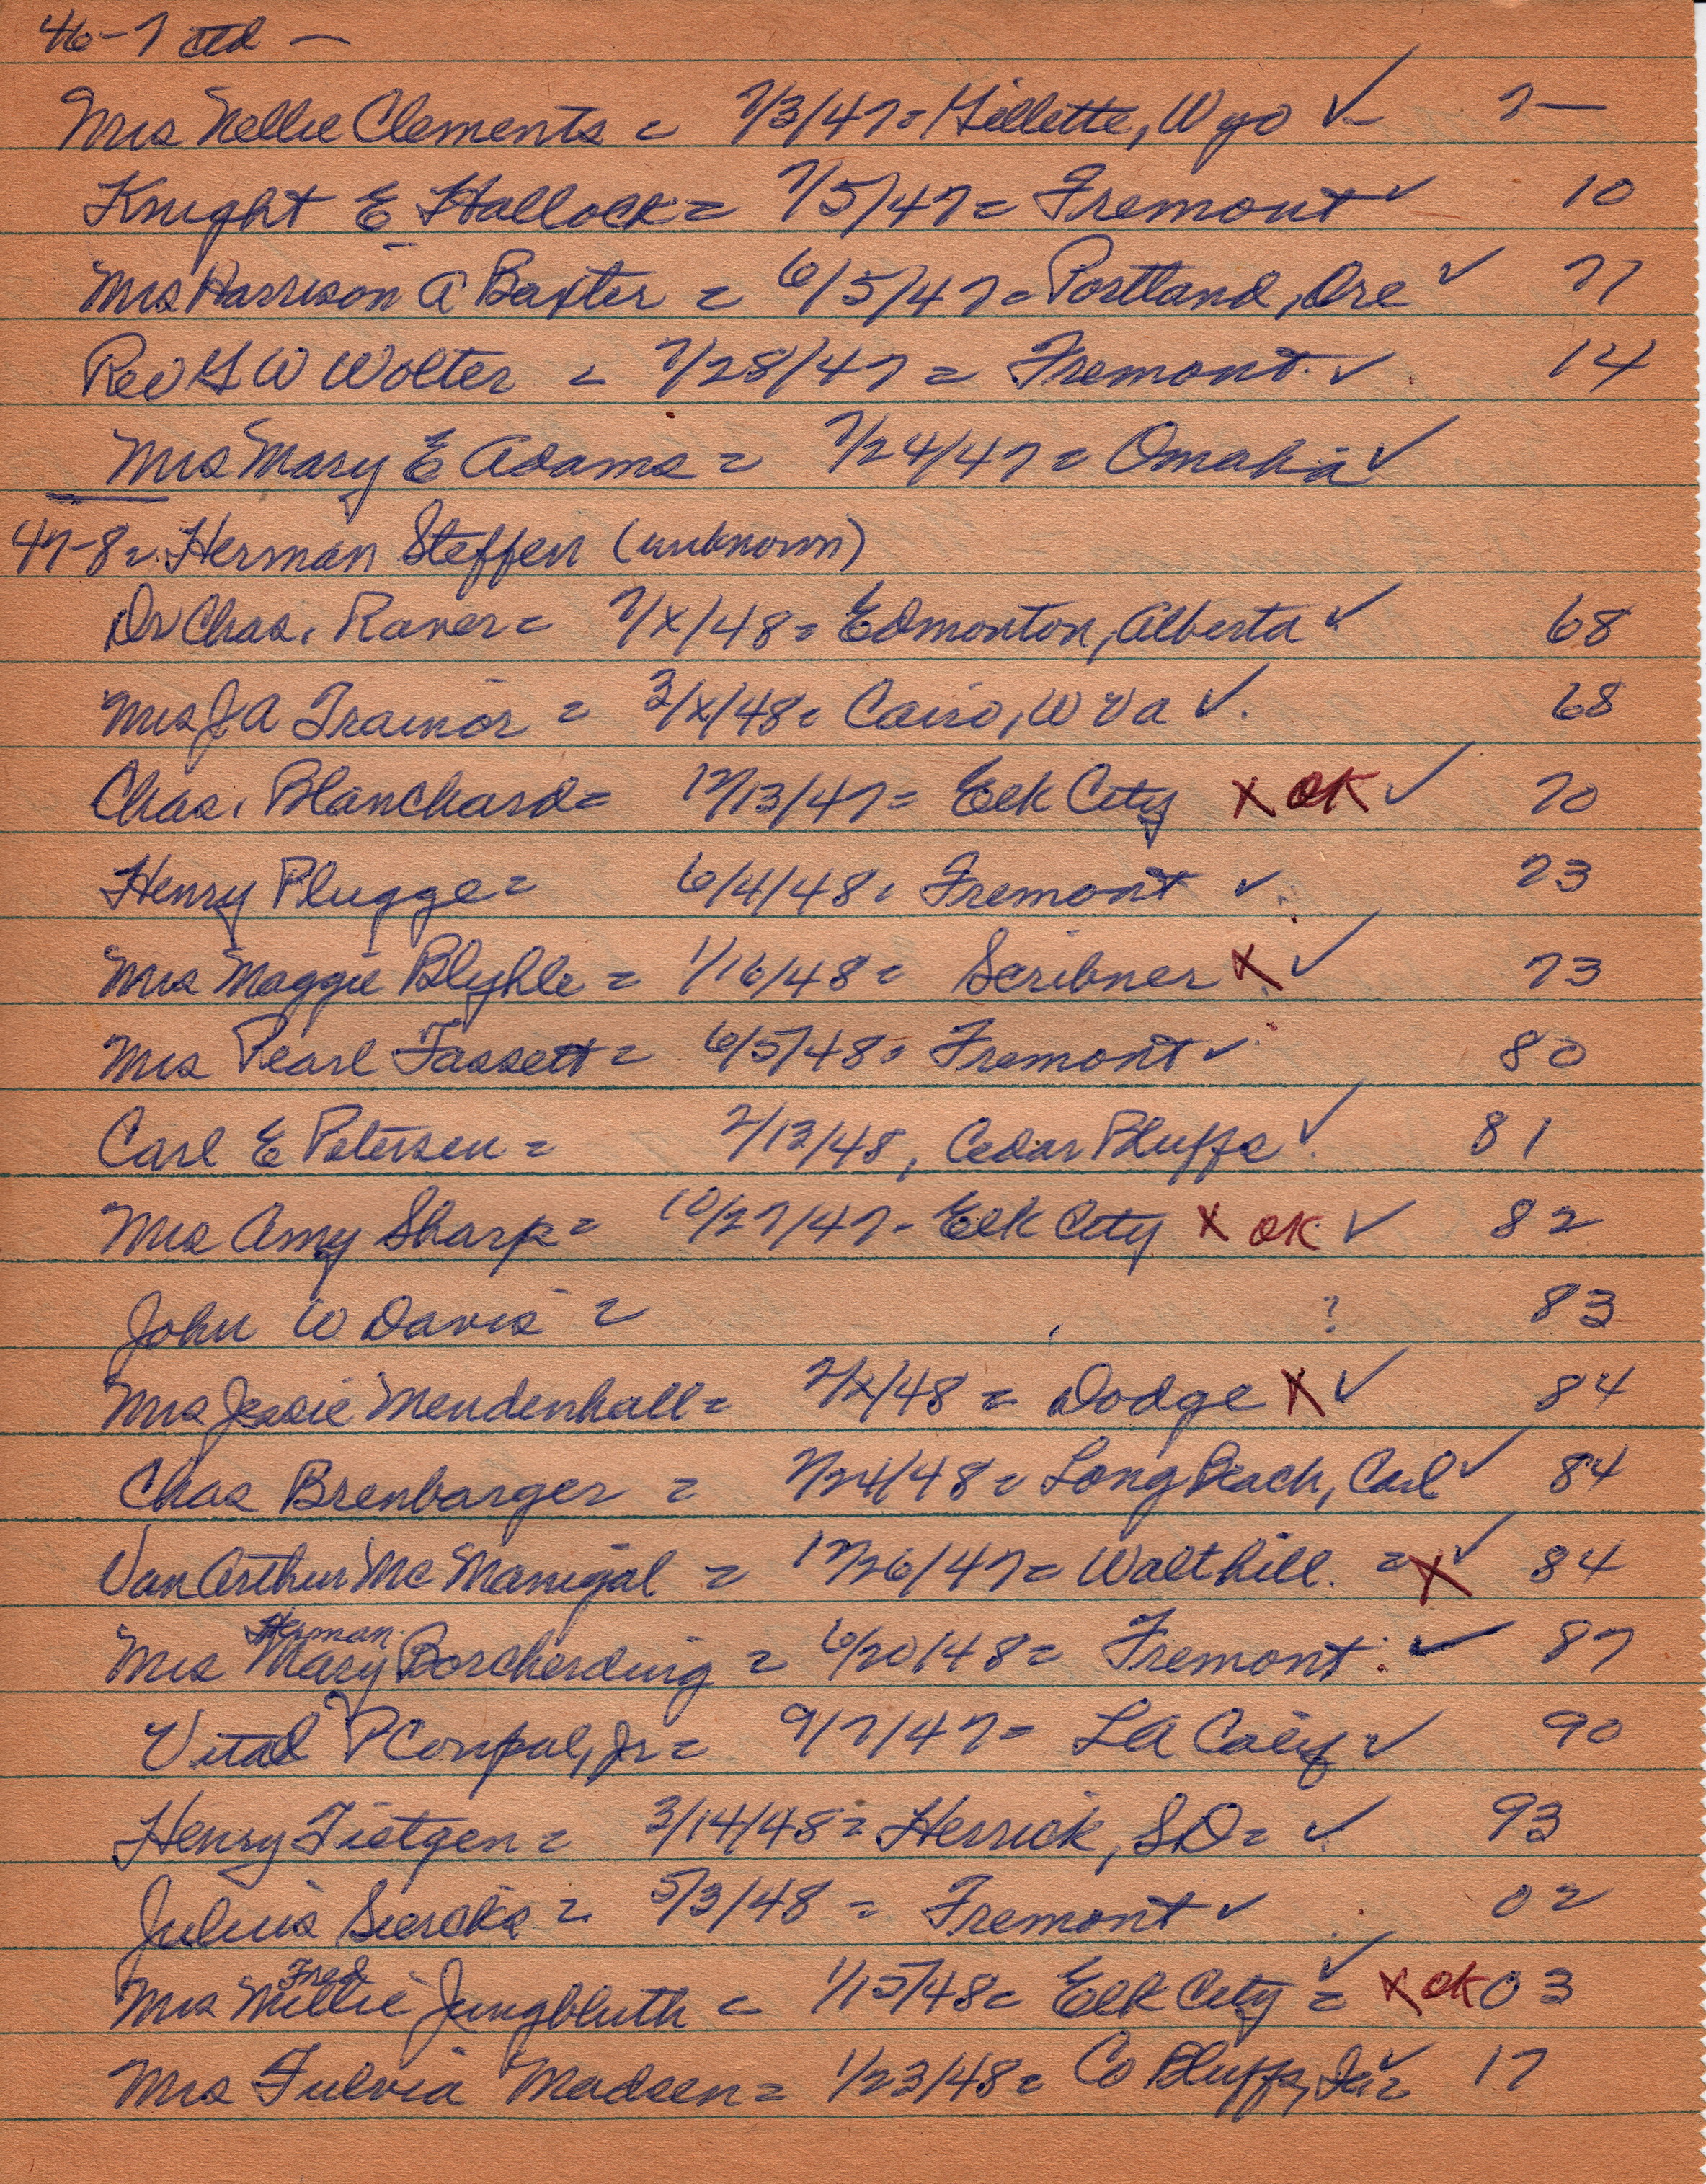 46-7 ctd —
Mrs Nellie Clements = 7/3/47 = Gillette, Wyo ✓ 7—
Knight E Hallock = 7/5/47 = Fremont ✓ 10
Mrs Harrison A Baxter = 6/5/47 = Portland, Ore ✓ 77
Rev G W Wolter = 7/28/47 = Fremont. ✓ 14
Mrs Mary E Adams = 7/24/47 = Omaha ✓
47-8 = Herman Steffen (unknown)
Dr Chas. Raver = 7/x/48 = Edmonton, Alberta ✓ 68
Mrs J A Trainor = 3/x/48 = Cairo, W Va ✓. 68
Chas. Blanchard = 12/13/47 = Elk City X OK ✓ 70
Henry Plugge = 6/4/48 = Fremont ✓. 73
Mrs Maggie Blyhle = 1/16/48 = Scribner X ✓ 73
Mrs Pearl Fassett = 6/5/48 = Fremont ✓ 80
Carl E Petersen = 2/12/48, Cedar Bluffs ✓ 81
Mrs Amy Sharp = 10/27/47 - Elk City X OK ✓ 82
John W Davis = ? 83
Mrs Jessie Mendenhall = 2/x/48 = Dodge X ✓ 84
Chas Brenbarger = 7/24/48 = Long Beach, Cal ✓ 84
Van Arthur McManigal = 12/26/47 = Walthill. = X ✓ 84
Herman
Mrs Mary Borcherding = 6/20/48 = Fremont ✓ 87
Vital P Conpal, Jr = 9/7/47 = LA Calif ✓ 90
Henry Tietgen = 3/14/48 = Herrick, SD = ✓ 93
Julius Siercks = 5/3/48 = Fremont ✓ 02
Fred
Mrs Millie Jungbluth = 1/15/48 = Elk City = ✓ X OK 03
Mrs Fulvia Madsen = 1/23/48 = Co Bluffs, Ia ✓ = 17